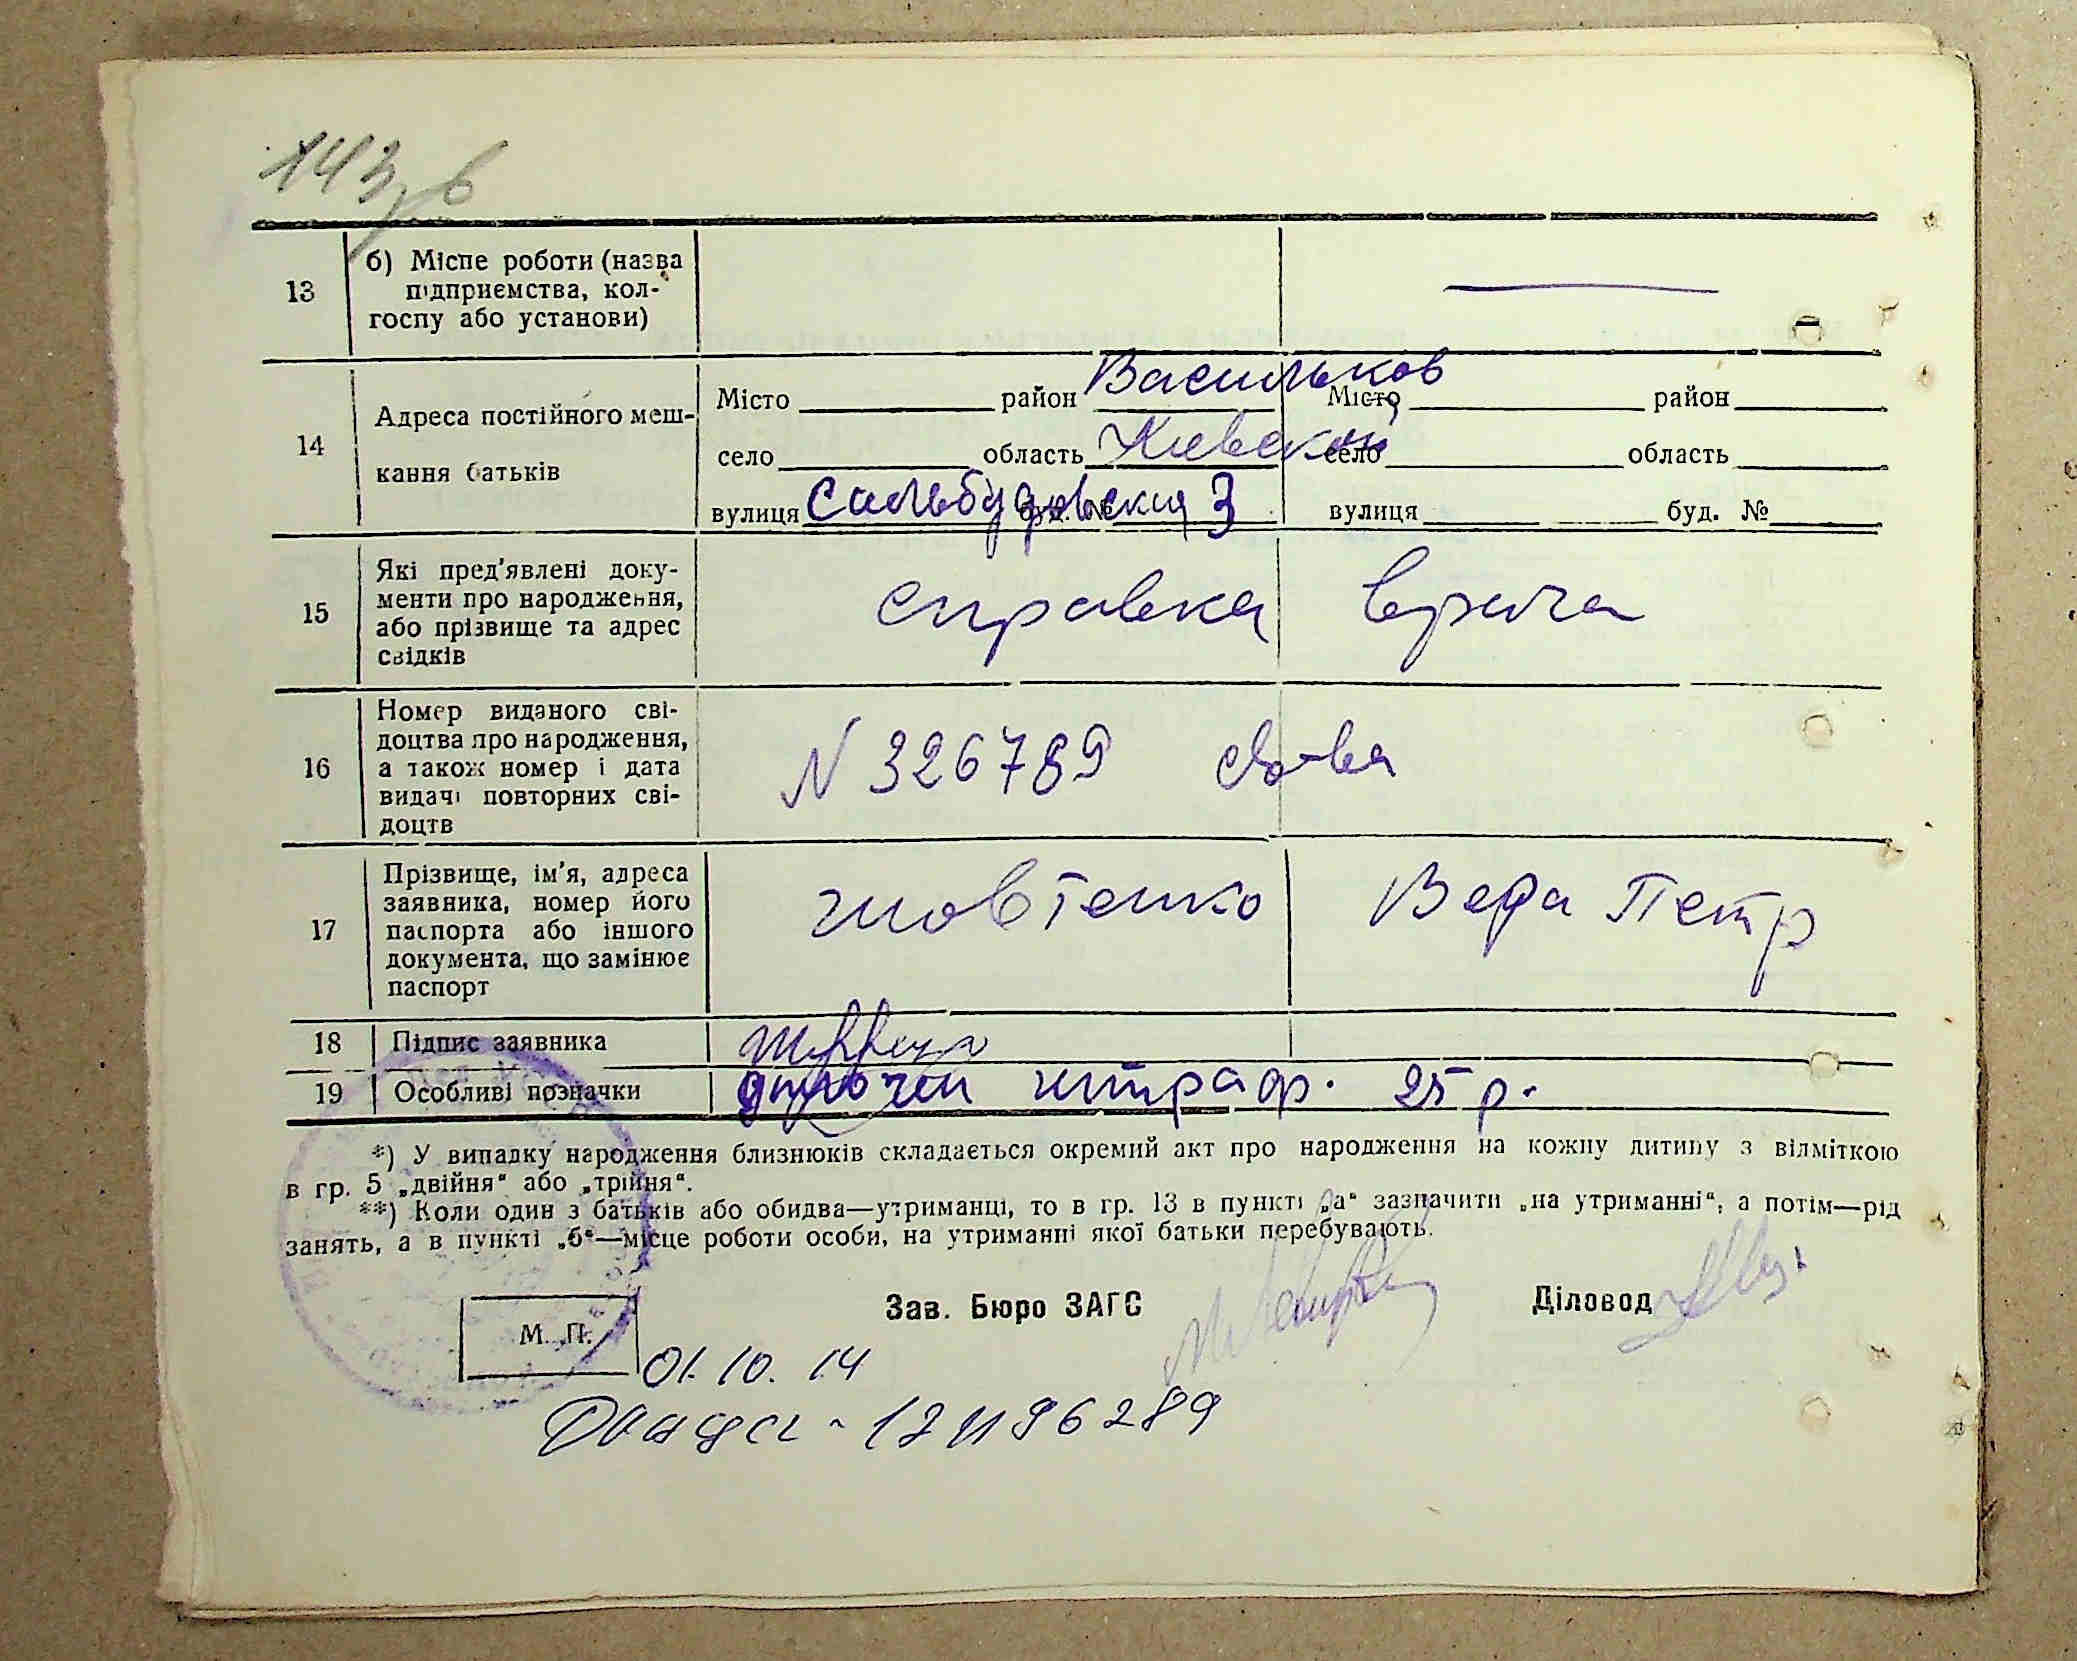 143,б
13
б) Місце роботи (назва
підприємства, кол-
госпу або установи)
14
Адреса постійного меш-
кання батьків
Місто район Васильков
село область Киевский
вулиця буд. № 3
Місто район
село область
вулиця буд. №
15
Які пред'явлені доку-
менти про народження,
або прізвище та адрес
свідків
справка врача
16
Номер виданого сві-
доцтва про народження,
а також номер і дата
видачі повторних сві-
доцтв
N 326789
17
Прізвище, ім'я, адреса
заявника, номер його
паспорта або іншого
документа, що замінює
паспорт
Шовтенко Вера Петр
18
Підпис заявника
19
Особливі позначки
штраф. 25 р.
*) У випадку народження близнюків складається окремий акт про народження на кожну дитину з відміткою
в гр. 5 „двійня“ або „трійня“.
**) Коли один з батьків або обидва—утриманці, то в гр. 13 в пункті „а“ зазначити „на утриманні“, а потім—рід
занять, а в пункті „б“—місце роботи особи, на утриманні якої батьки перебувають.
Зав. Бюро ЗАГС
Діловод
М. П.
01.10.14